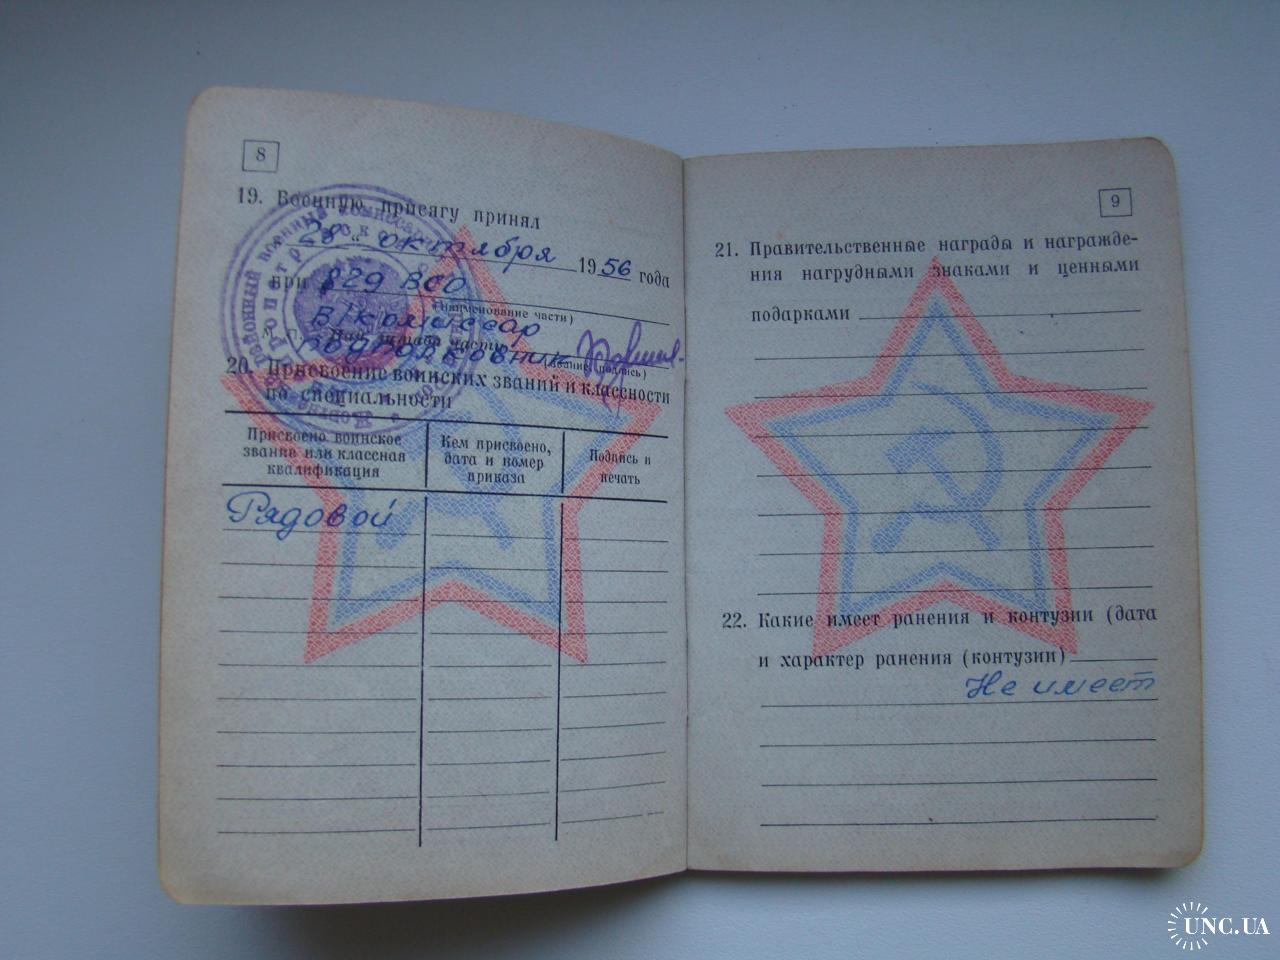 8
19. Военную присягу принял
„28“ октября 1956 года
при 829 ВСО
(наименование части)
В/комиссар
М. П. Нач. штаба части
подполковник
(звание, подпись)
20. Присвоение воинских званий и классности
по специальности
Присвоено воинское
звание или классная
квалификация
Кем присвоено,
дата и номер
приказа
Подпись и
печать
Рядовой
9
21. Правительственные награды и награжде-
ния нагрудными знаками и ценными
подарками
22. Какие имеет ранения и контузии (дата
и характер ранения (контузии)
Не имеет
UNC.UA